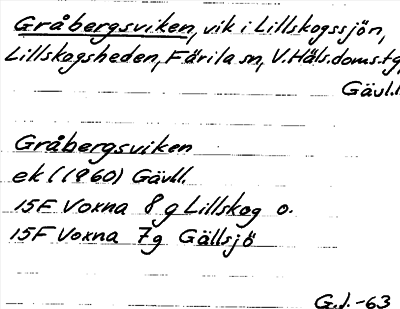 Gråbergsviken, vik i Lillskogssjön,
Lillskogsheden, Färila sn, V. Häls. doms. tg,
Gävl.l.
Gråbergsviken
ek (1960) Gävll.
15F Voxna 8g Lillskog o.
15F Voxna 7g Gällsjö
G.J. -63